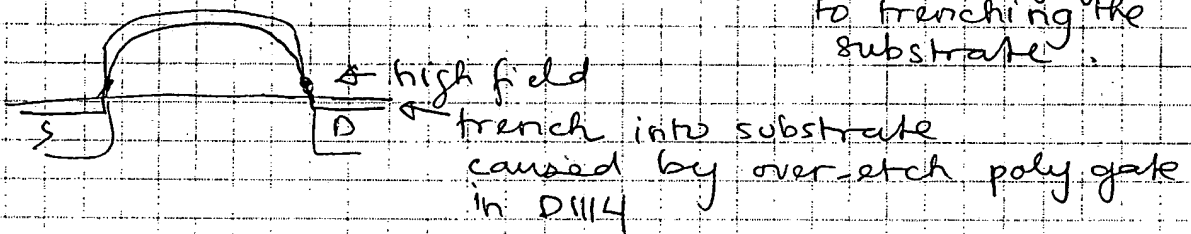 to trenching the
substrate.
← high field
S D ← trench into substrate
caused by over-etch poly gate
in D1114